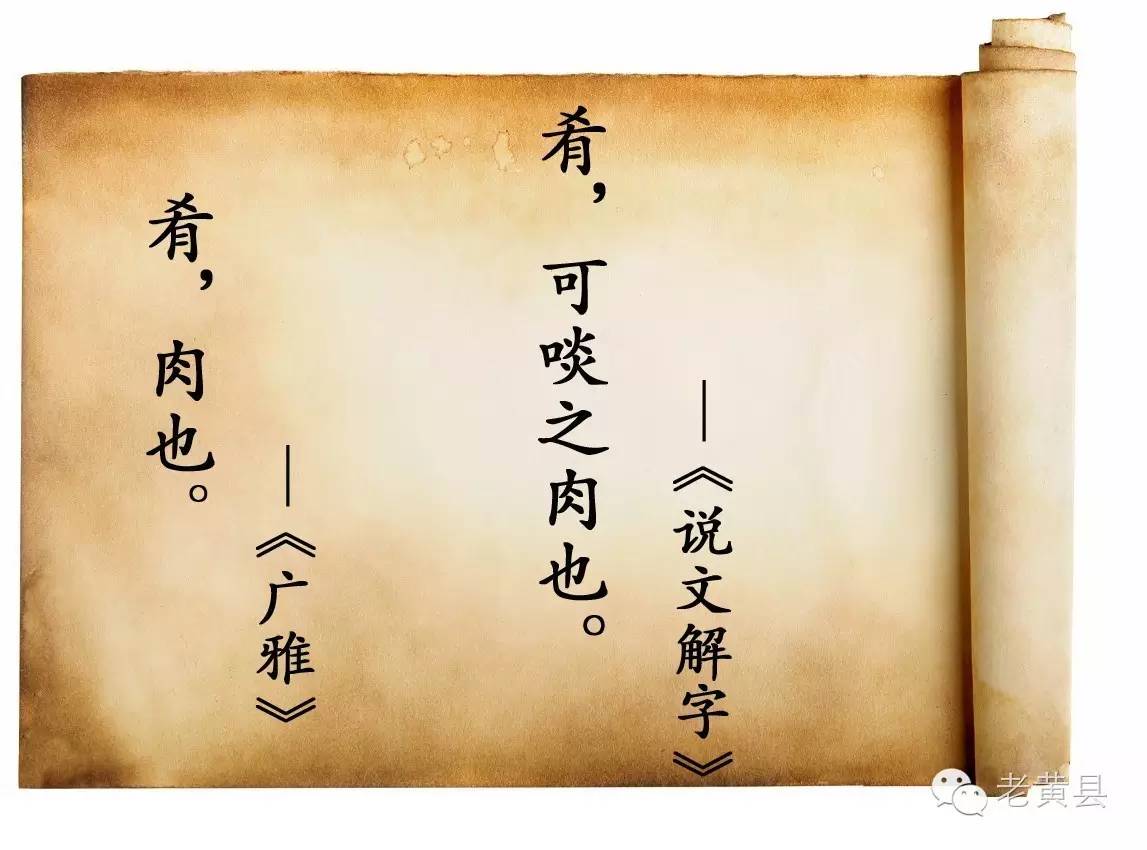 肴，肉也。
—《广雅》
肴，可啖之肉也。
—《说文解字》
老黄县